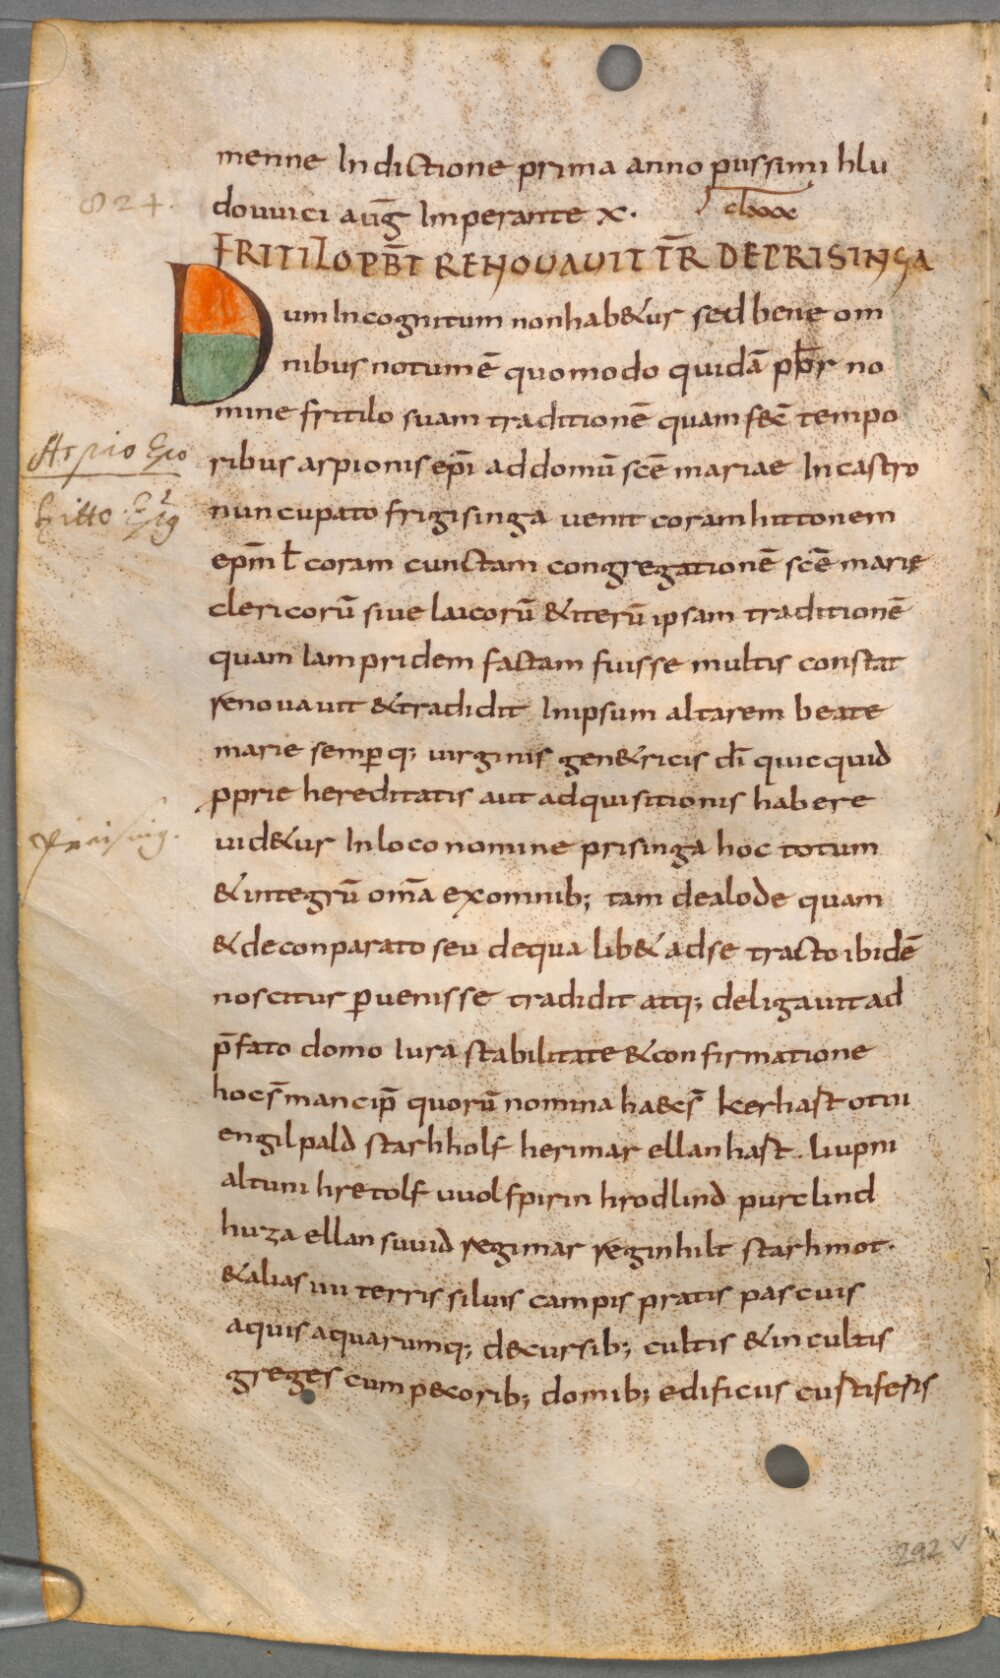 menne Indictione prima anno piissimi hlu
824.
douuici auḡ Imperante x.
clxxx
FRITILO PB̄T RENOVAUIT T̄R DE PRISINGA
Dum Incognitum non hab&ur sed bene om
nibus notum ē quomodo quidā pb̄r no
mine fritilo suam traditionē quam fec̄ tempo
Arpio Epō
ribus arpionis ep̄i ad domū scē mariae In castro
Hitto
nuncupato frigisinga uenit coram hittonem
ep̄m ł coram cunctam congregationē scē marię
clericorū siue laicorū &iterū ipsam traditionē
quam Iam pridem factam fuisse multis constat
renouauit &tradidit Inipsum altarem beate
marie semp̱q; uirginis gen&ricis dī quicquid
ꝓprie hereditatis aut adquisitionis habere
Preising.
uid&ur Inloco nomine prisinga hoc totum
&integrū om̄a exomnib; tam dealode quam
&deconparato seu dequa lib& adse tracto ibidē
noscitur ꝑuenisse tradidit atq; deligauit ad
p̄fato domo Iura stabilitate &confirmatione
hoc s̄ mancip̄ quorū nomina haec s̄ kerhast otni
engilpald starhholf herimar ellanhast. liupni
altuni hretolf uuolfpirin hrodlind purclind
huza ellansuuid regimar reginhilt starhmot.
&alias uii terris siluis campis pratis pascuis
aquis aquarumq; decursib; cultis &incultis
greges cum pecorib; domib; edificiis custifesis
292 v